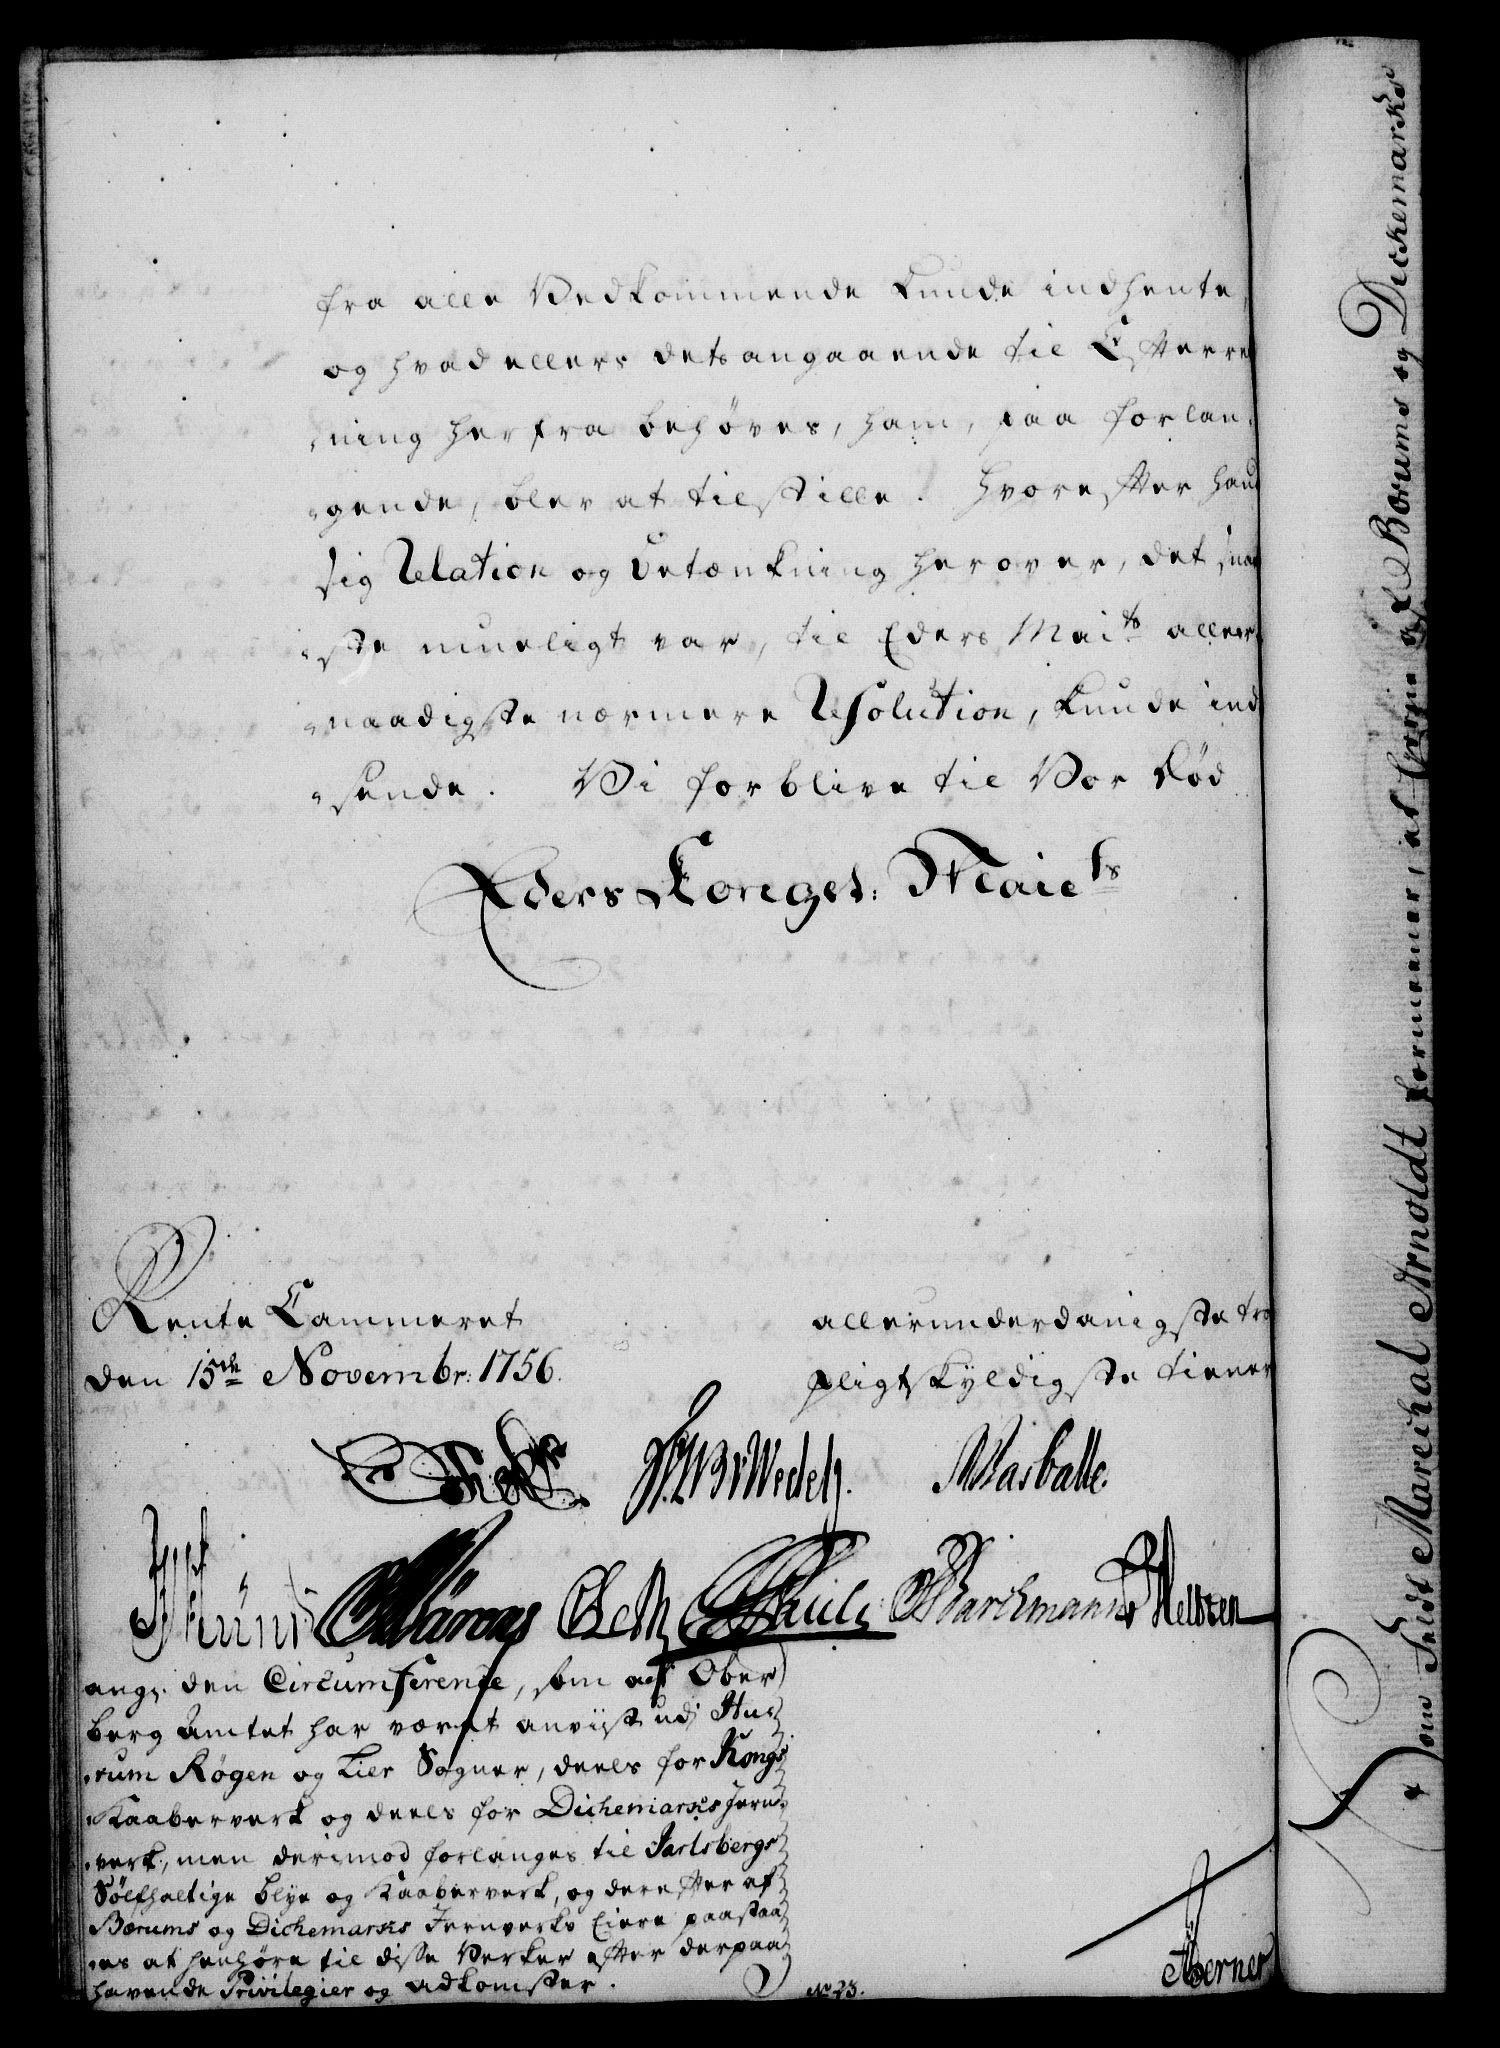 fra alle Vedkommende kunde indhente,
og hvad ellers dets angaaende til Efterret
ning herfra behøves, ham, paa forlan,
gende, blev at tilstille. Hvorefter hand
sig Relation og betænkning herover, det snar
ste mueligt var, til Eders Maits allern
naadigste nærmere Resolution, kunde ind
sende. Vi forblive til Vor død
Eders Kongel: Maiets
Rente Cammeret
den 15de Novembr: 1756.
allerunderdanigste tro
pligtskyldigste tiener
Holst
Wedell.
Rasballe.
Barchmann
Nelszen
ang: den Circumference, som af Ober
berg Amtet har været anviist udj Hu
rum Røgen og Lier Sogner, deels for Kongs
Kaaberverk og deels for Dichemarks Jern
verk, men derimod forlanges til Jarlsbergs
Sølfholtige blye og Kaaberverk, og derefter af
Bærums og Dichemarks Jernverks Eiere paastaa
es at henhøre til disse Verker efter derpaa
havende Privilegier og adkomster.
No 23.
Berner
som Feldt Mareichal Arnoldt formeener, at Eyerne af Bærums og Dichemarks